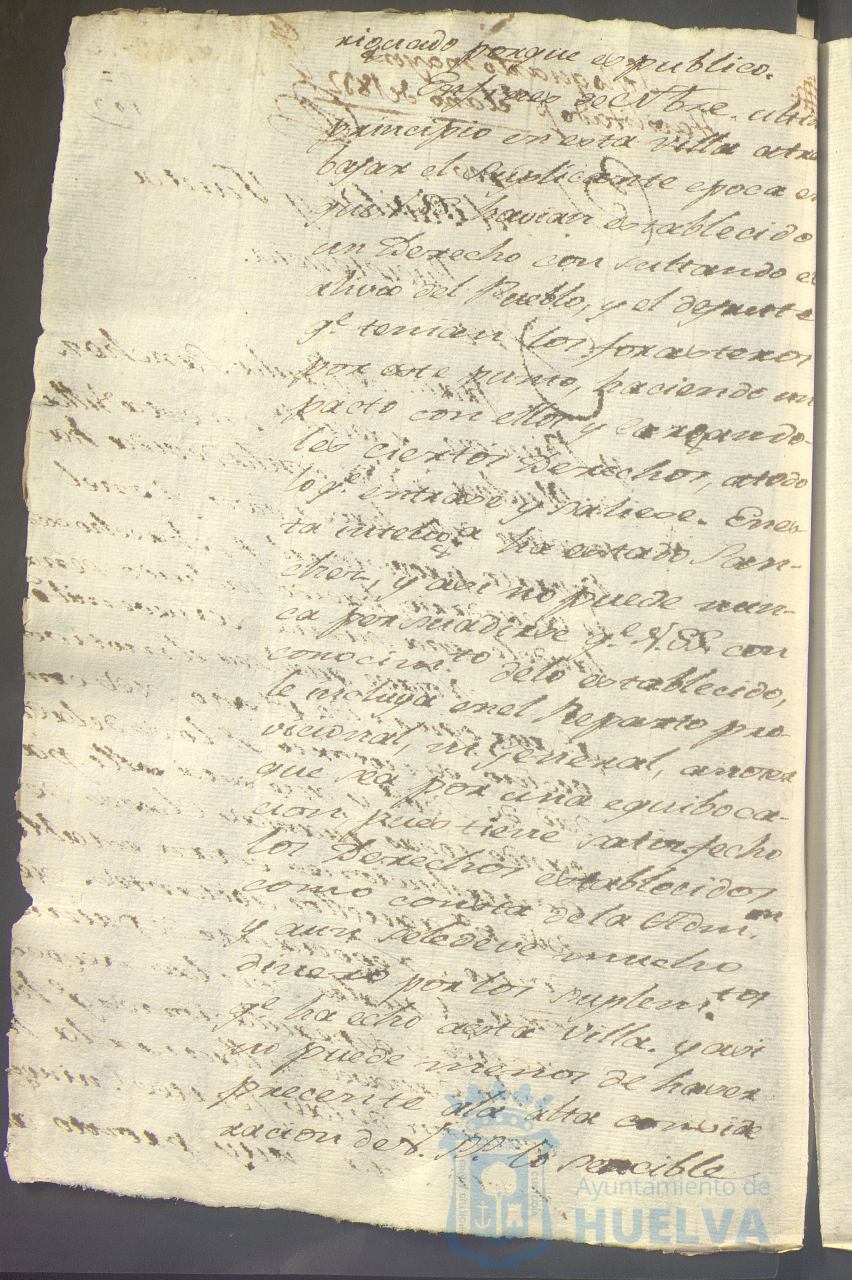 riguado porque es publico.
En tres de Nbre. ulti
principio en esta villa atra
bajar el Suplicante epoca en
que havian establecido
un Derecho consultando el
alivio del Pueblo, y el desfrute
qe. tenian los forasteros
por este punto, haciendo un
pacto con ellos y cargando-
les ciertos Derechos, atodo
lo qe. entrase y saliese. Enes-
ta inteliga. ha estado San-
chez, y asi no puede nun-
ca persuadirse qe. V.SS. con
conocimto. delo establecido,
le incluya enel Reparto pro-
vicional, ni General, anoser
que sea por una equiboca-
cion pues tiene satisfecho
los Derechos establecidos
como consta de la Admon.
y aun seledeve mucho
dinero por los suplemtos.
qe. ha echo aesta Villa. y asi
no puede menos de haver
precente ala alta concide
racion de V.SS. lo sencible
Ayuntamiento de
HUELVA